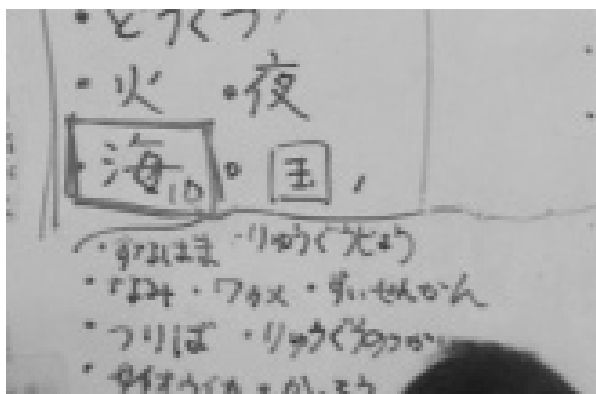 ・どうくつ
・火 ・夜
・海10 ・国
・すなはま ・りゅうぐうじょう
・なみ ・ワカメ ・すいせんかん
・つりば ・リュウグウのつかい